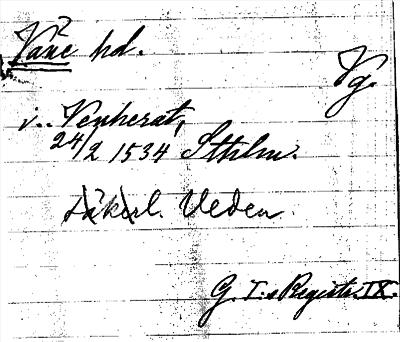 Väne hd.
Vg.
i. Venherat,
24/2 1534 Sthlm.
säkerl. Veden.
G. I:s Registr. IX.